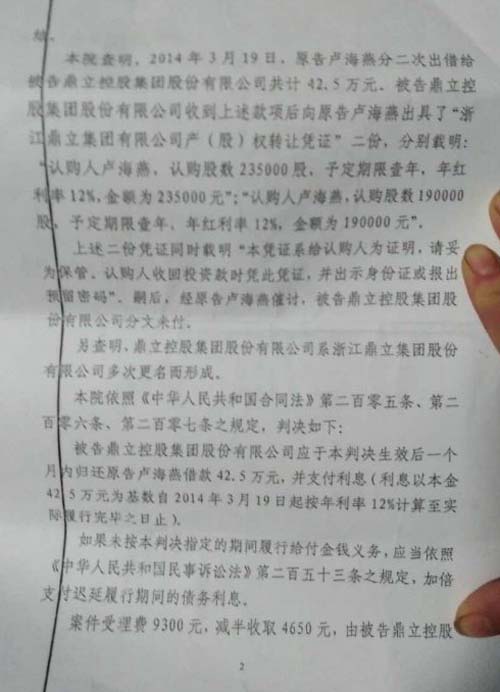 结。
本院查明,2014年3月19日,原告卢海燕分二次出借给
被告鼎立控股集团股份有限公司共计42.5万元。被告鼎立控
股集团股份有限公司收到上述款项后向原告卢海燕出具了“浙
江鼎立集团有限公司产(股)权转让凭证”二份,分别载明:
“认购人卢海燕,认购股数235000股,予定期限壹年,年红
利率12%,金额为235000元”;“认购人卢海燕,认购股数190000
股,予定期限壹年,年红利率12%,金额为190000元”。
上述二份凭证同时载明“本凭证系给认购人为证明,请妥
为保管。认购人收回投资款时凭此凭证,并出示身份证或报出
预留密码”。嗣后,经原告卢海燕催讨,被告鼎立控股集团股
份有限公司分文未付。
另查明,鼎立控股集团股份有限公司系浙江鼎立集团股份
有限公司多次更名而形成。
本院依照《中华人民共和国合同法》第二百零五条、第二
百零六条、第二百零七条之规定,判决如下:
被告鼎立控股集团股份有限公司应于本判决生效后一个
月内归还原告卢海燕借款42.5万元,并支付利息(利息以本金
42.5万元为基数自2014年3月19日起按年利率12%计算至实
际履行完毕之日止)。
如果未按本判决指定的期间履行给付金钱义务,应当依照
《中华人民共和国民事诉讼法》第二百五十三条之规定,加倍
支付迟延履行期间的债务利息。
案件受理费9300元,减半收取4650元,由被告鼎立控股
2